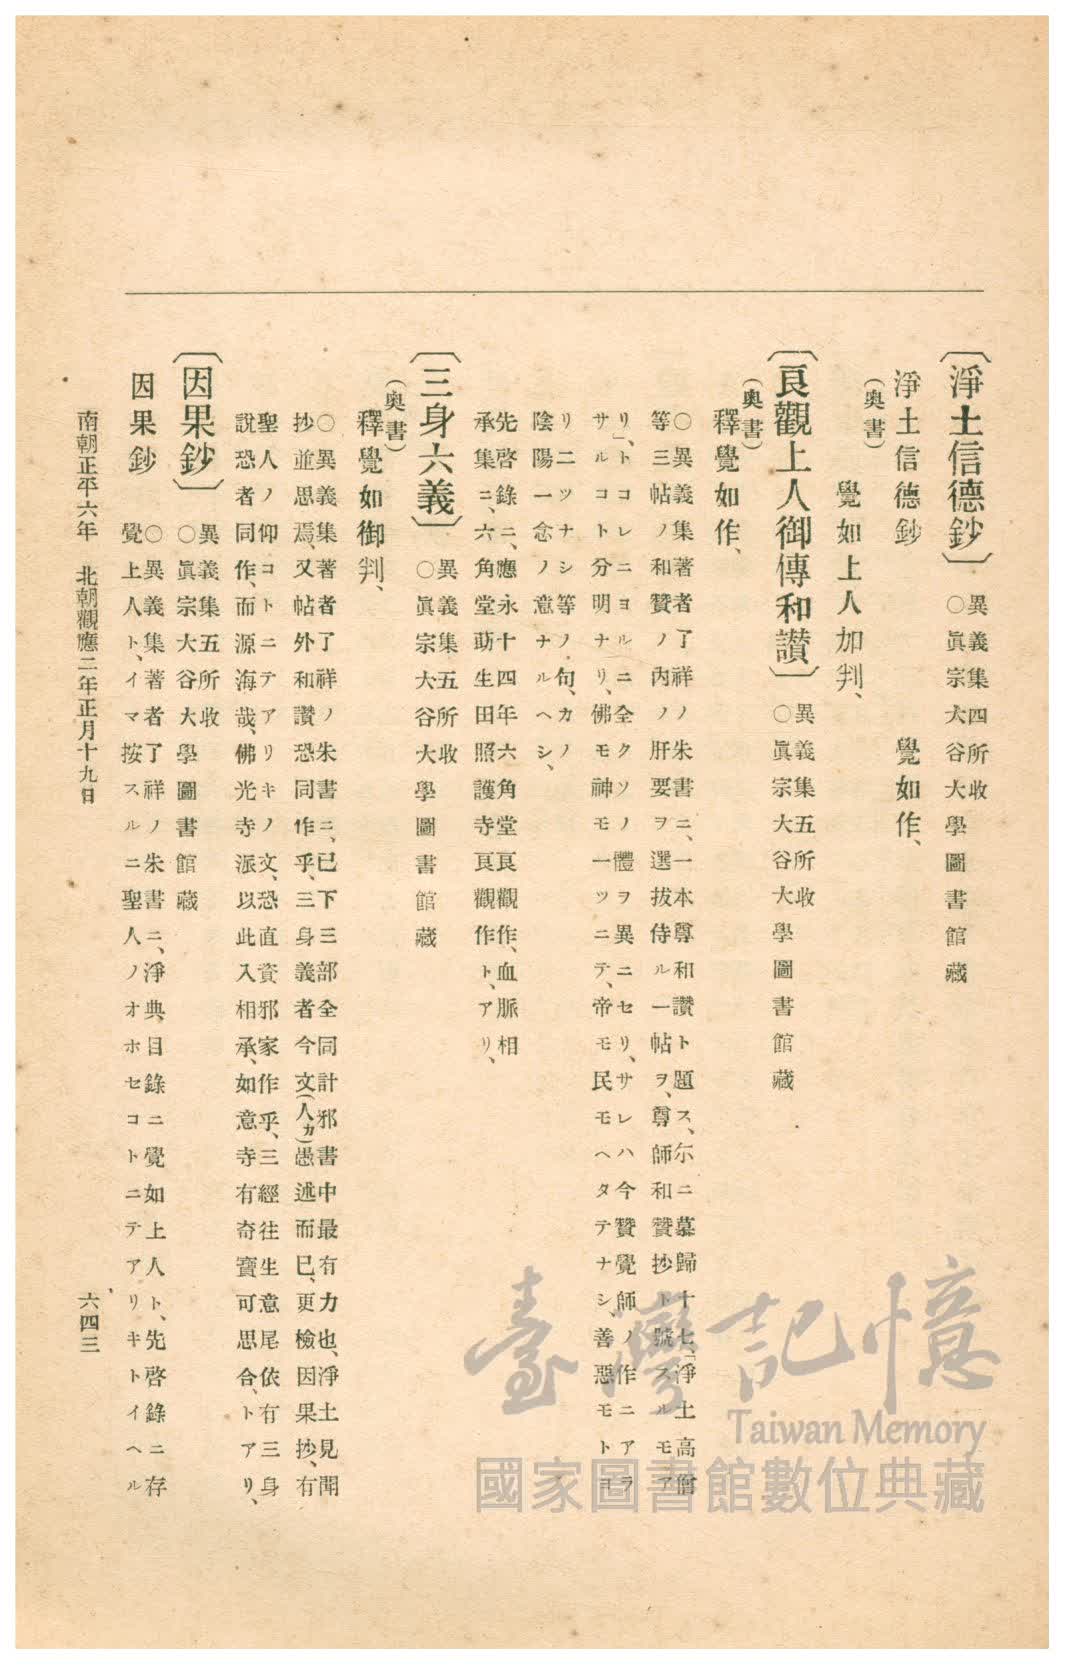 〔淨土信德鈔〕
異義集四所收
〇眞宗大谷大學圖書館藏
淨土信德鈔　覺如作、
(奥書)
覺如上人加判、
〔良觀上人御傳和讃〕
異義集五所收
〇眞宗大谷大學圖書館藏
(奥書)
釋覺如作、
〇異義集著者了祥ノ朱書ニ、一本尊和讃ト題ス、尓ニ慕歸十七、「淨土高僧
等三帖ノ和贊ノ內ノ肝要ヲ選拔侍ル一帖ヲ、尊師和贊抄ト號スルモア
リ、」トコレニヨルニ全クソノ體ヲ異ニセリ、サレハ今贊覺師ノ作ニアラ
サルコト分明ナリ、佛モ神モ一ツニテ、帝モ民モヘタテナシ、善惡モトヨ
リ二ツナシ等ノ句、カノ
陰陽一念ノ意ナルヘシ、
先啓錄ニ、應永十四年六角堂良觀作、血脈相
承集ニ、六角堂莇生田照護寺良觀作ト、アリ、
〔三身六義〕
異義集五所收
〇眞宗大谷大學圖書館藏
(奥書)
釋覺如御判、
〇異義集著者了祥ノ朱書ニ、已下三部全同計邪書中最有力也、淨土見聞
抄並思焉、又帖外和讃恐同作乎、三身義者今文(人カ)愚述而巳、更檢因果抄、有
聖人ノ仰コトニテアリキノ文、恐直資邪家作乎、三經往生意尾依有三身
說恐者同作、而源海哉、佛光寺派以此入相承、如意寺有奇寶可思合、トアリ、
〔因果鈔〕
異義集五所收
〇眞宗大谷大學圖書館藏
因果鈔
〇異義集著者了祥ノ朱書ニ、淨典目錄ニ覺如上人ト、先啓錄ニ存
覺上人ト、イマ按スルニ聖人ノオホセコトニテアリキトイヘル
南朝正平六年　北朝觀應二年正月十九日
六四三
臺灣記憶
Taiwan Memory
國家圖書館數位典藏